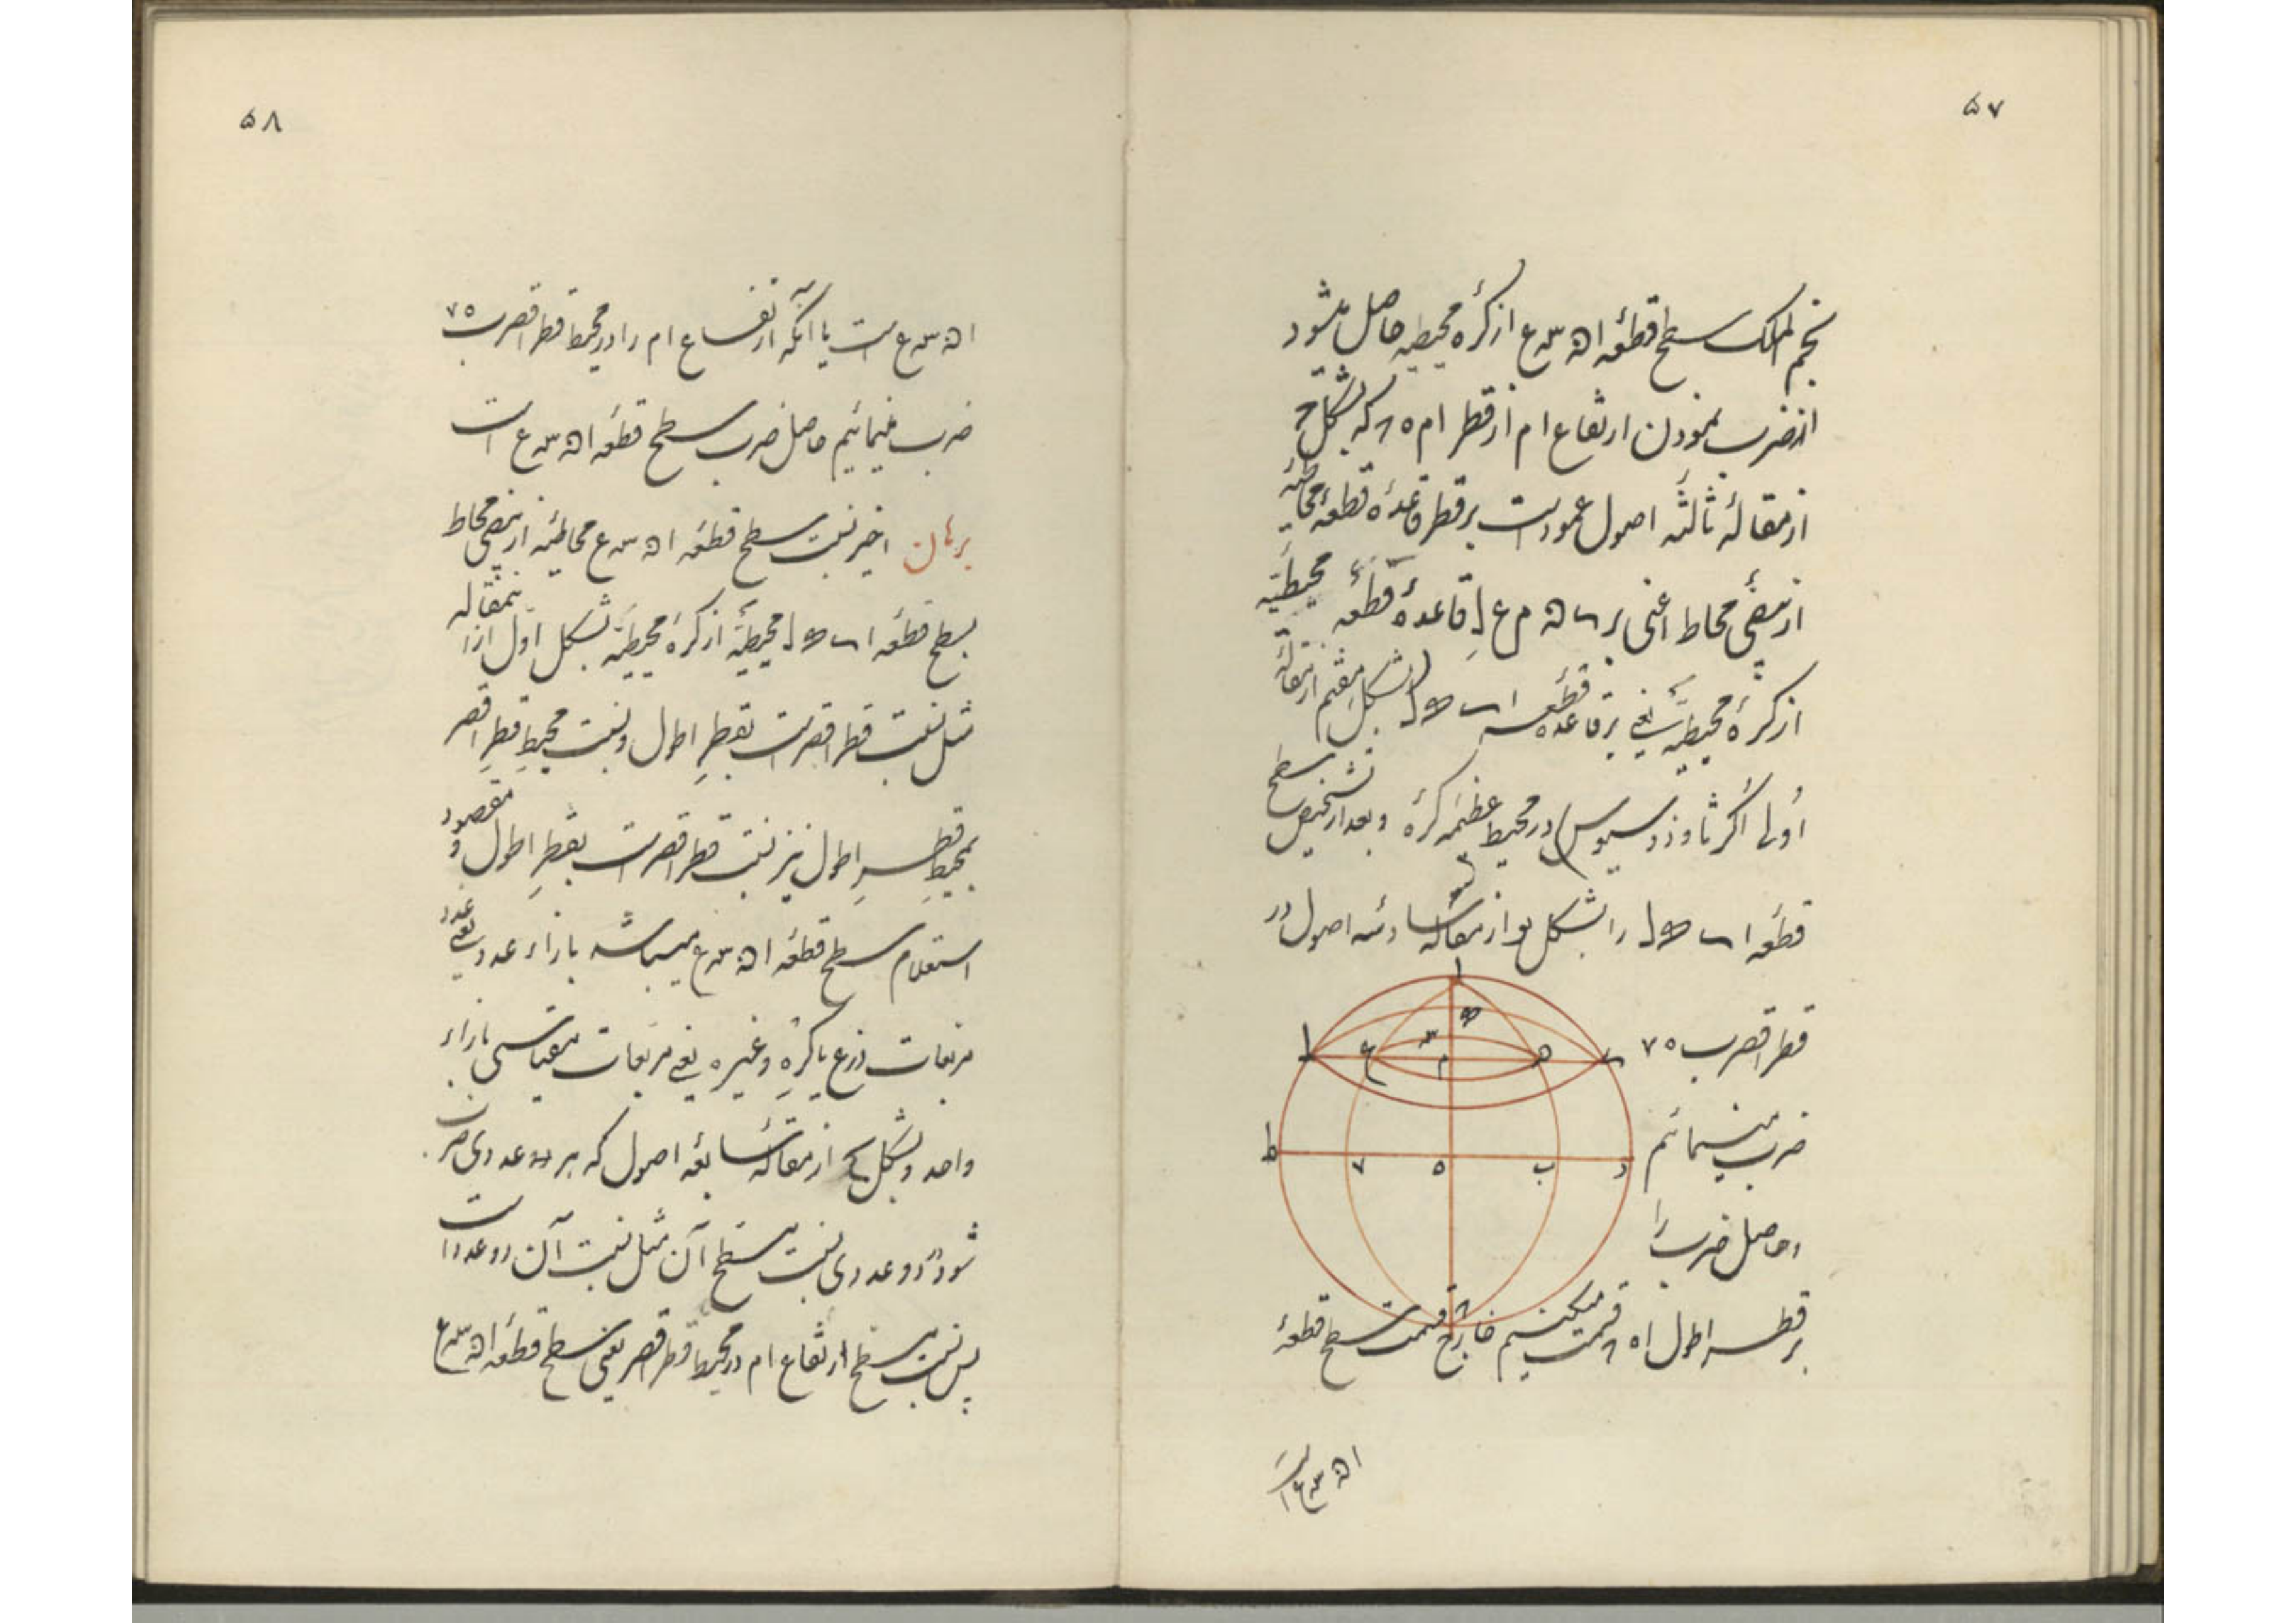 ۵۷
نجم الملک سطح قطعهٔ ا ﻫ س ع از کرهٔ محیطیه حاصل میشود
از ضرب نمودن ارتفاع ا م از قطر ا م ه که بشکل
از مقالهٔ ثالثه اصول عمود است بر قطر قاعدهٔ قطعهٔ محاطیه
از بیضی محاط اعنی بر ﻫ م ع قاعدهٔ قطعه محیطیه
از کرهٔ محیطیه یعنی بر قاعده قطعه ا ل بشکل از مقالهٔ
اولی اکر ثاوذوسیوس در محیط عظیمه کره و بعد از تشخیص سطح
قطعه ا ل را بشکل از مقالهٔ سادسه اصول در
قطر اقصر ب ه ۷
ضرب مینمائیم
و حاصل ضرب را
بر قطر اطول ا ه قسمت میکنیم خارج قسمت سطح قطعهٔ
ا ﻫ س ع است
ا س ﻫ م ع ل
ط ۷ ه ب د
۵۸
ا ﻫ س ع است یا آنکه ارتفاع ا م را در محیط قطر اقصر ب ه ۷
ضرب مینمائیم حاصل ضرب سطح قطعه ا ﻫ س ع است
برهان اخیر نسبت سطح قطعه ا ﻫ س ع محاطیه از بیضی محاط
بسطح قطعه ا ل محیطیه از کره محیطیه بشکل اول از این مقاله
مثل نسبت قطر اقصر است بقطر اطول و نسبت محیط قطر اقصر
بمحیط قطر اطول نیز نسبت قطر اقصر است بقطر اطول و مقصود
استعلام سطح قطعه ا ﻫ س ع میباشد بازاء عدد یعنی عدد
مربعات ذرع یا کره و غیره یعنی مربعات مقیاسی بازاء
واحد و بشکل از مقاله سابعه اصول که هر عددی ضرب
شود در دو عددی نسبت مسطح آن مثل نسبت آن دو عدد است
پس نسبت مسطح ارتفاع ا م در محیط قطر اقصر یعنی سطح قطعه ا ﻫ س ع